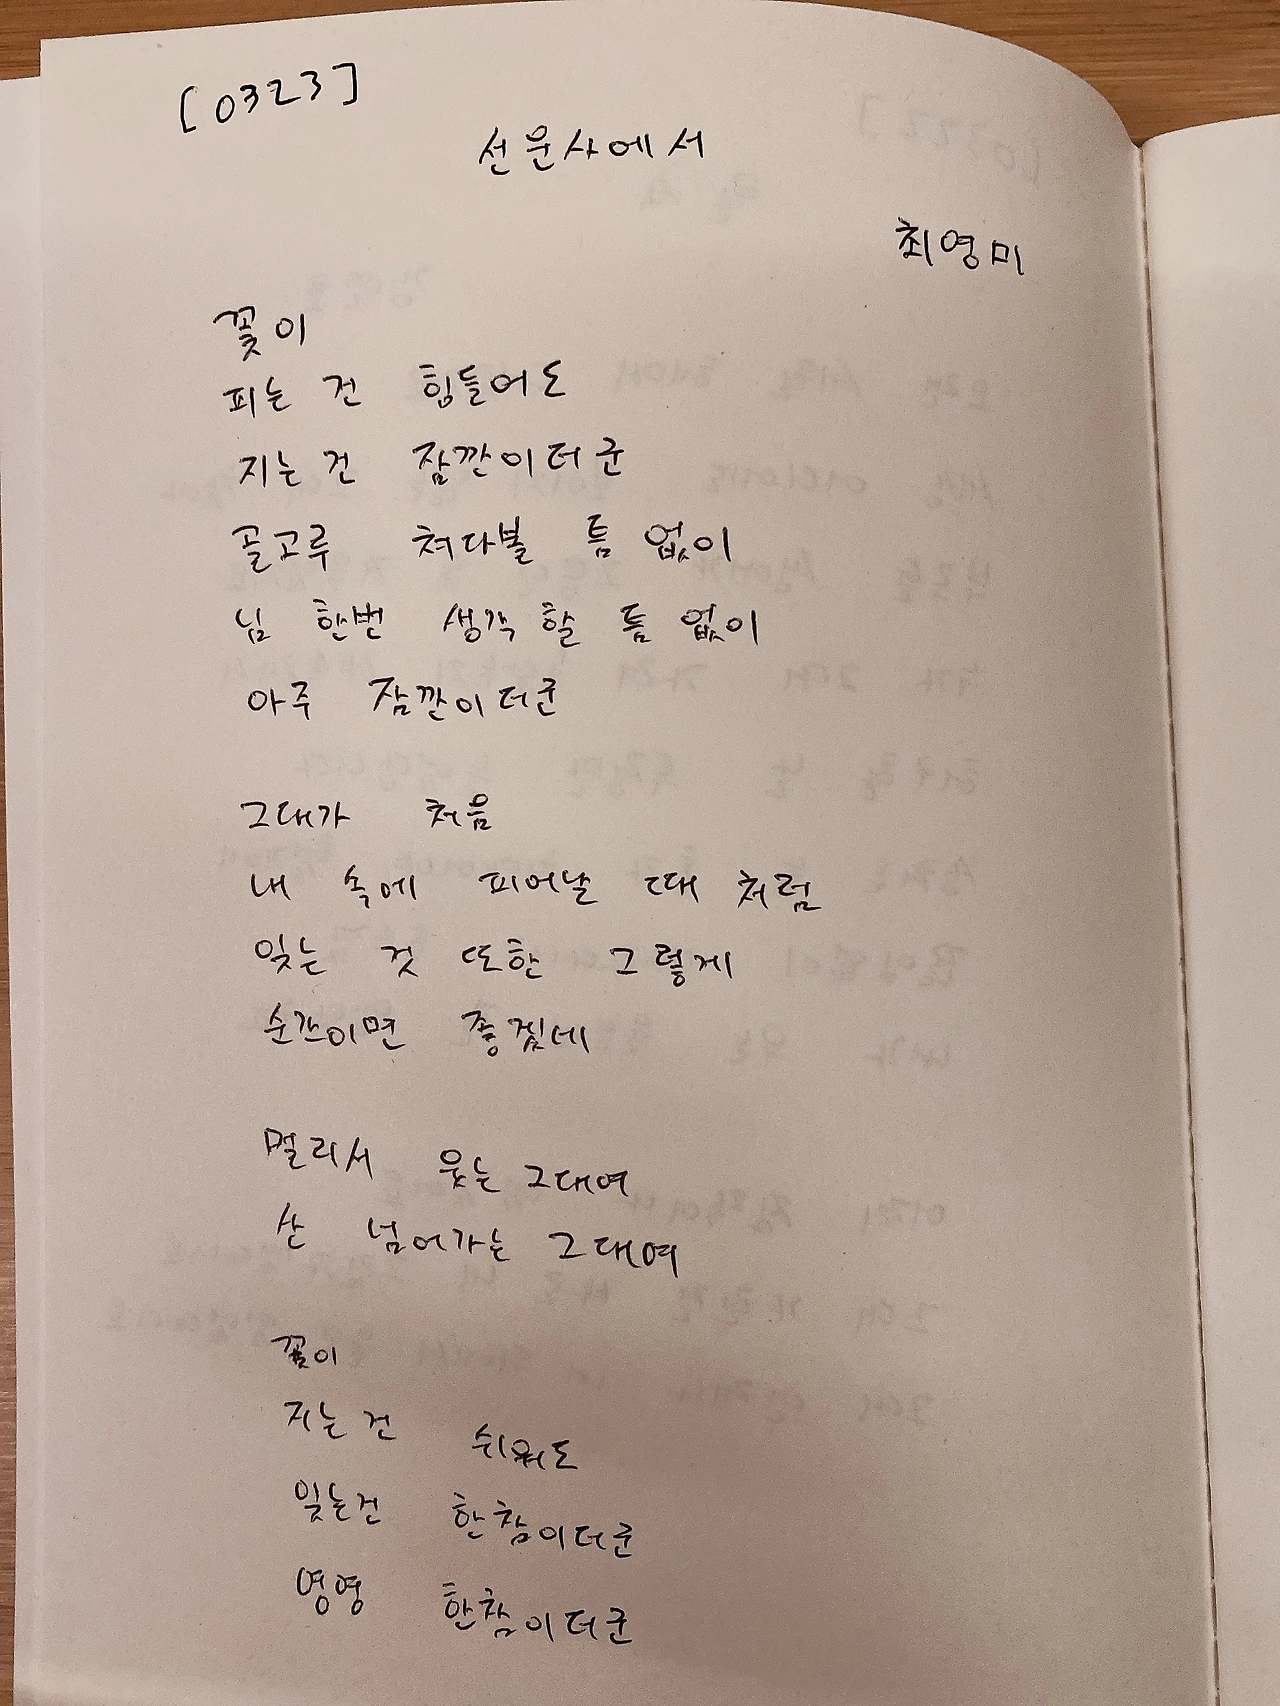 [0323]
선운사에서
최영미
꽃이
피는 건 힘들어도
지는건 잠깐이더군
골고루 쳐다볼 틈 없이
님 한번 생각 할 틈 없이
아주 잠깐이더군
그대가 처음
내 속에 피어날 때 처럼
잊는 것 또한 그렇게
순간이면 좋겠네
멀리서 웃는 그대여
산 넘어가는 그대여
꽃이
지는 건 쉬워도
잊는건 한참이더군
영영 한참이더군